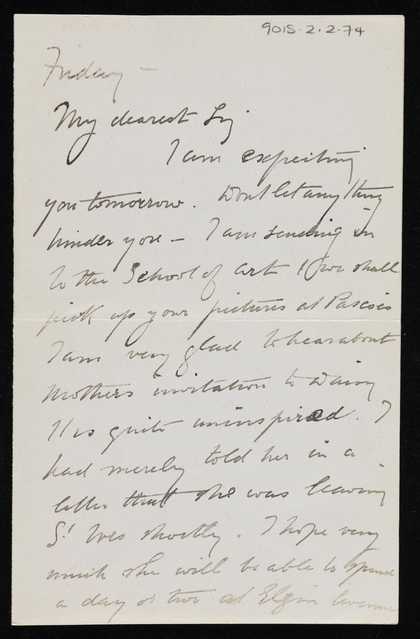 9015-2-2-74
Friday —
My dearest
I am expecting
you tomorrow. Dont let anything
hinder you — I am sending in
to the School of Art & we shall
pick up your pictures at Pascoes
I am very glad to hear about
Mothers invitation to Daisy
It is quite uninspired. I
had merely told her in a
letter that she was leaving
St Ives shortly. I hope very
much she will be able to spend
a day or two at Elgin Avenue